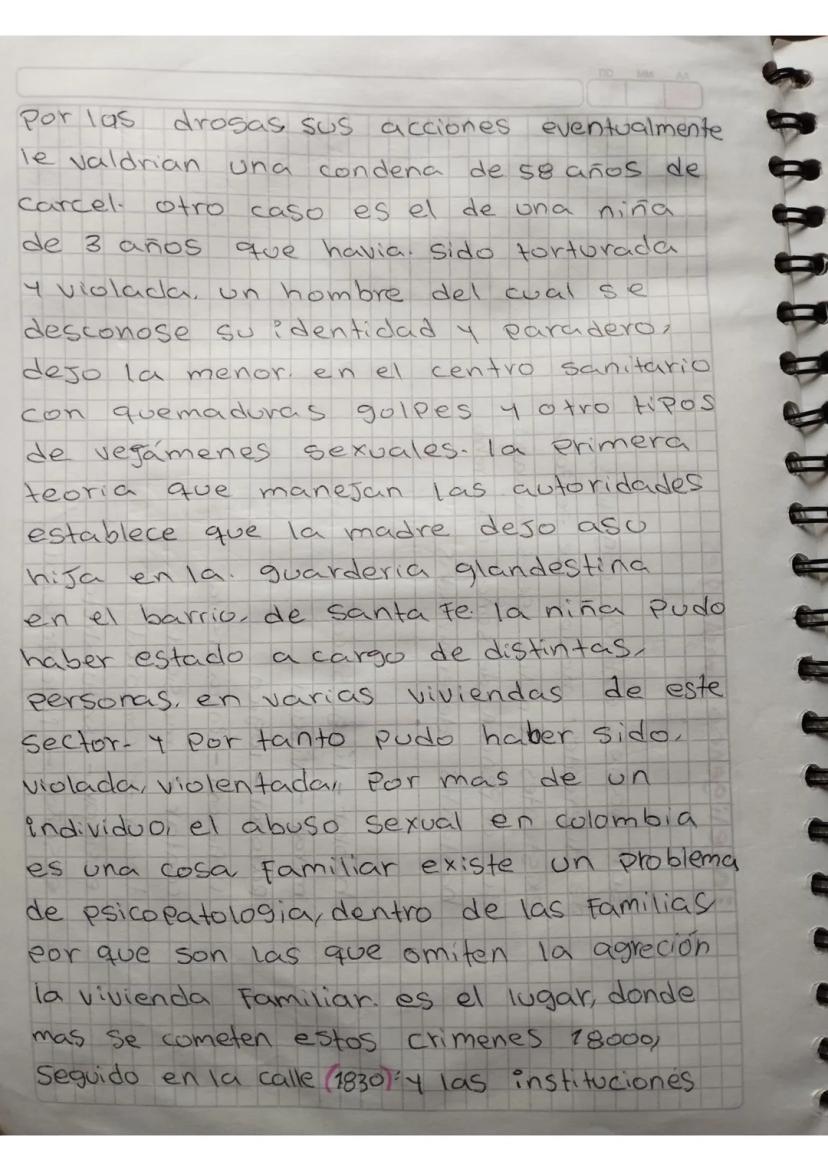 DD MM AA
por las drogas sus acciones eventualmente
le valdrian una condena de 58 años de
carcel. otro caso es el de una niña
de 3 años que havia. sido torturada
y violada, un hombre del cual se
desconose su identidad y paradero,
dejo la menor. en el centro sanitario
con quemaduras golpes y otro tipos
de vegámenes sexuales. la primera
teoria que manejan las autoridades
establece que la madre dejo asu
hija en la. guarderia glandestina
en el barrio, de santa fe. la niña pudo
haber estado a cargo de distintas,
personas, en varias viviendas de este
sector. y por tanto pudo haber sido,
violada, violentada, por mas de un
individuo, el abuso sexual en colombia
es una cosa familiar existe un problema
de psicopatologia, dentro de las familias
por que son las que omiten la agreción
la vivienda familiar. es el lugar, donde
mas se cometen estos crimenes 18000,
seguido en la calle (1830): y las instituciones